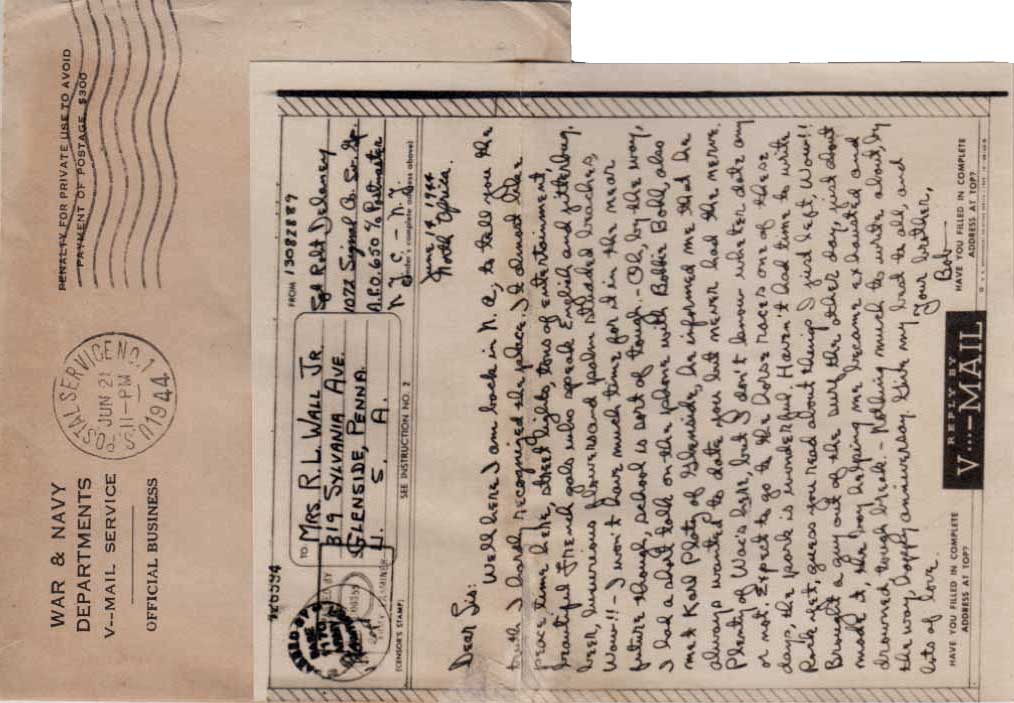 WAR & NAVY
DEPARTMENTS
V--MAIL SERVICE
OFFICIAL BUSINESS
U.S. POSTAL SERVICE NO. 1
JUN 21
11-PM
1944
PENALTY FOR PRIVATE USE TO AVOID
PAYMENT OF POSTAGE, $300
TO
MRS. R. L. WALL JR.
319 SYLVANIA AVE.
GLENSIDE, PENNA.
U. S. A.
FROM 13082889
Sgt Robt Delaney
1072 Signal Co. Sv. Gp.
A.P.O. 650 % Postmaster
N.Y.C. - N.Y.
(Sender's complete address above)
(CENSOR'S STAMP)
SEE INSTRUCTION NO. 2
June 19, 1944
North Africa.
Dear Sis:
Well here I am back in N. A., to tell you the
truth I hardly recognized the place. It almost like
peace time here, street lights, tons of entertainment,
beautiful French gals who speak English and jitterbug,
beer, luxurious flowers and palm studded beaches,
Wow!! - I won't have much time for it in the near
future though, school is sort of tough. - Oh, by the way,
I had a short talk on the phone with Bobbie Bohl, also
met Karl Plotz of Glenside, he informed me that he
always wanted to date you but never had the nerve.
Plenty of Wac's here, but I don't know whether date any
or not. Expect to go to the horse races one of these
days, the park is wonderful. Haven't had time to write
Ruth yet, guess you read about things I just left, Wow!!
Brought a guy out of the surf the other day, just about
made it, the boy helping me became exhausted and
drowned tough break. - Nothing much to write about, by
the way, happy anniversary. Give my best to all, and
lots of love.
Your brother,
Bob
HAVE YOU FILLED IN COMPLETE
ADDRESS AT TOP?
REPLY BY
V...-MAIL
HAVE YOU FILLED IN COMPLETE
ADDRESS AT TOP?